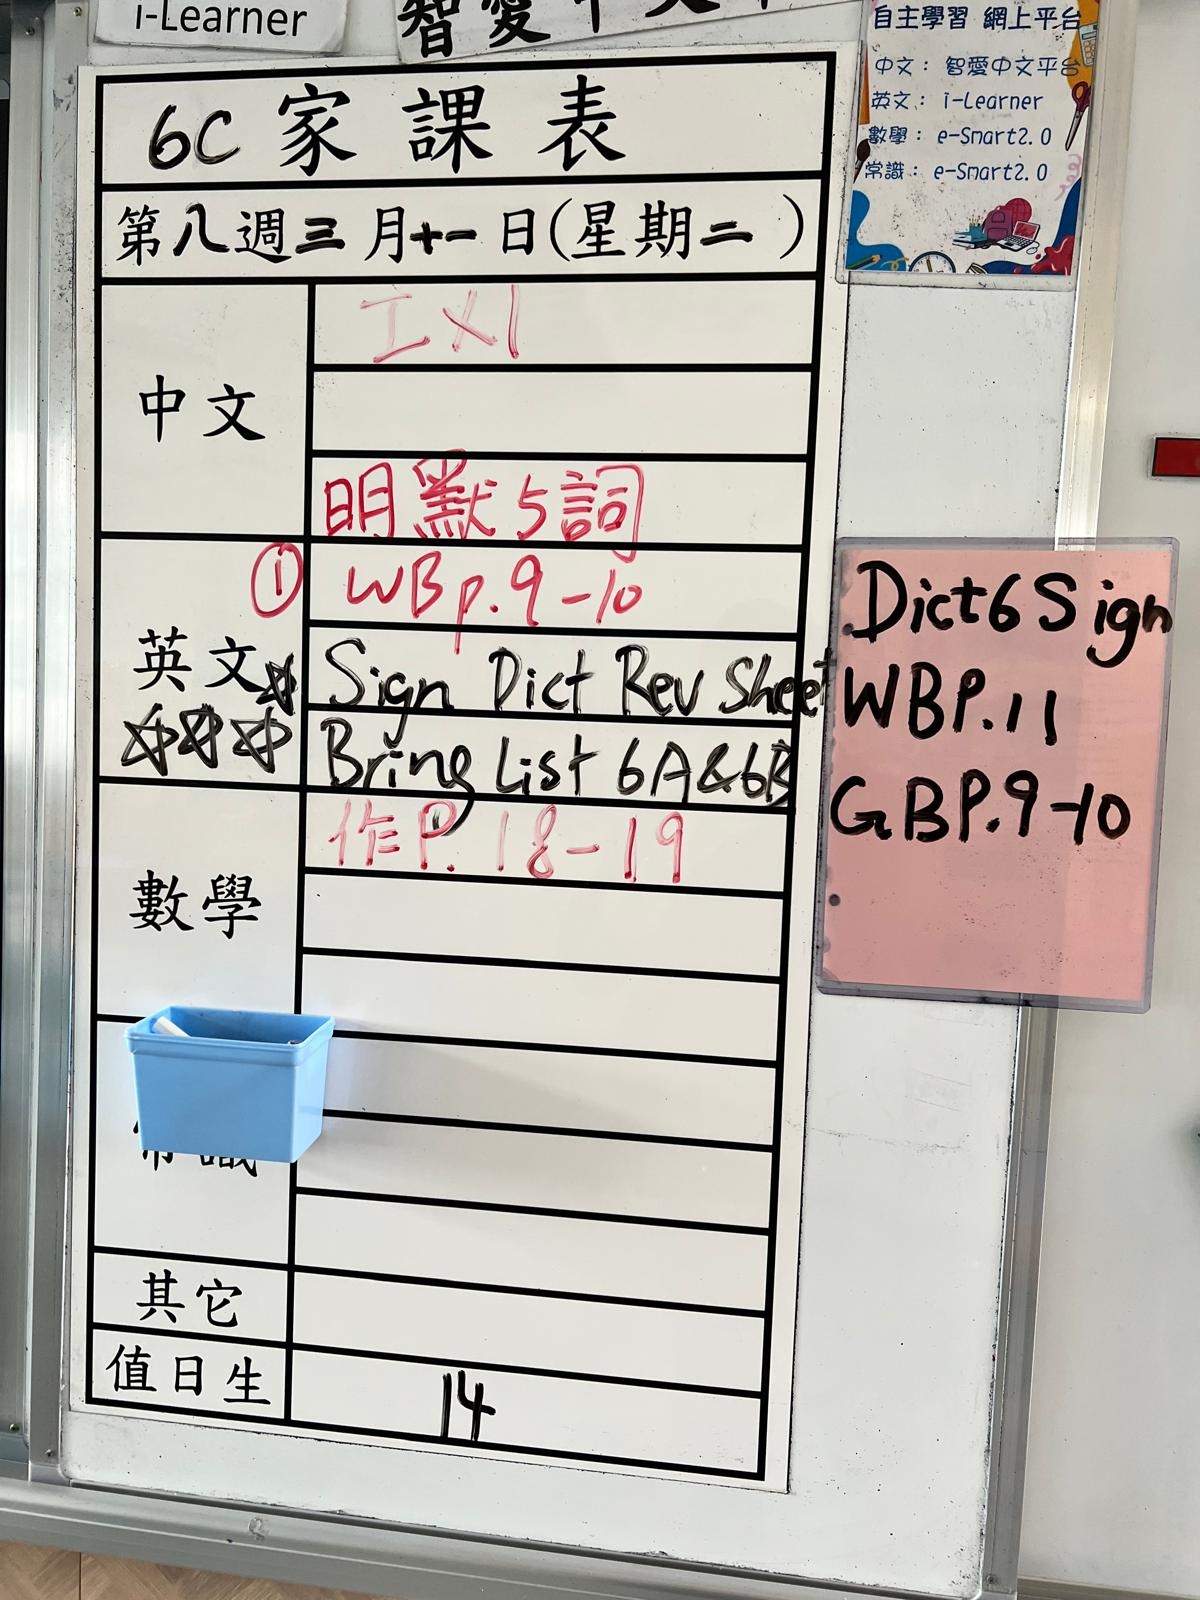 i-Learner
智愛中文
自主學習 網上平台
中文： 智愛中文平台
英文： i-Learner
數學： e-Smart2.0
常識： e-Smart2.0
6C 家課表
第八週三月十一日(星期二)
中文
工x1
明默5詞
英文
① WB p.9-10
Sign Dict Rev Sheet
Bring List 6A&6B
數學
作P.18-19
常識
其它
值日生
14
Dict6 Sign
WBP.11
GBP.9-10